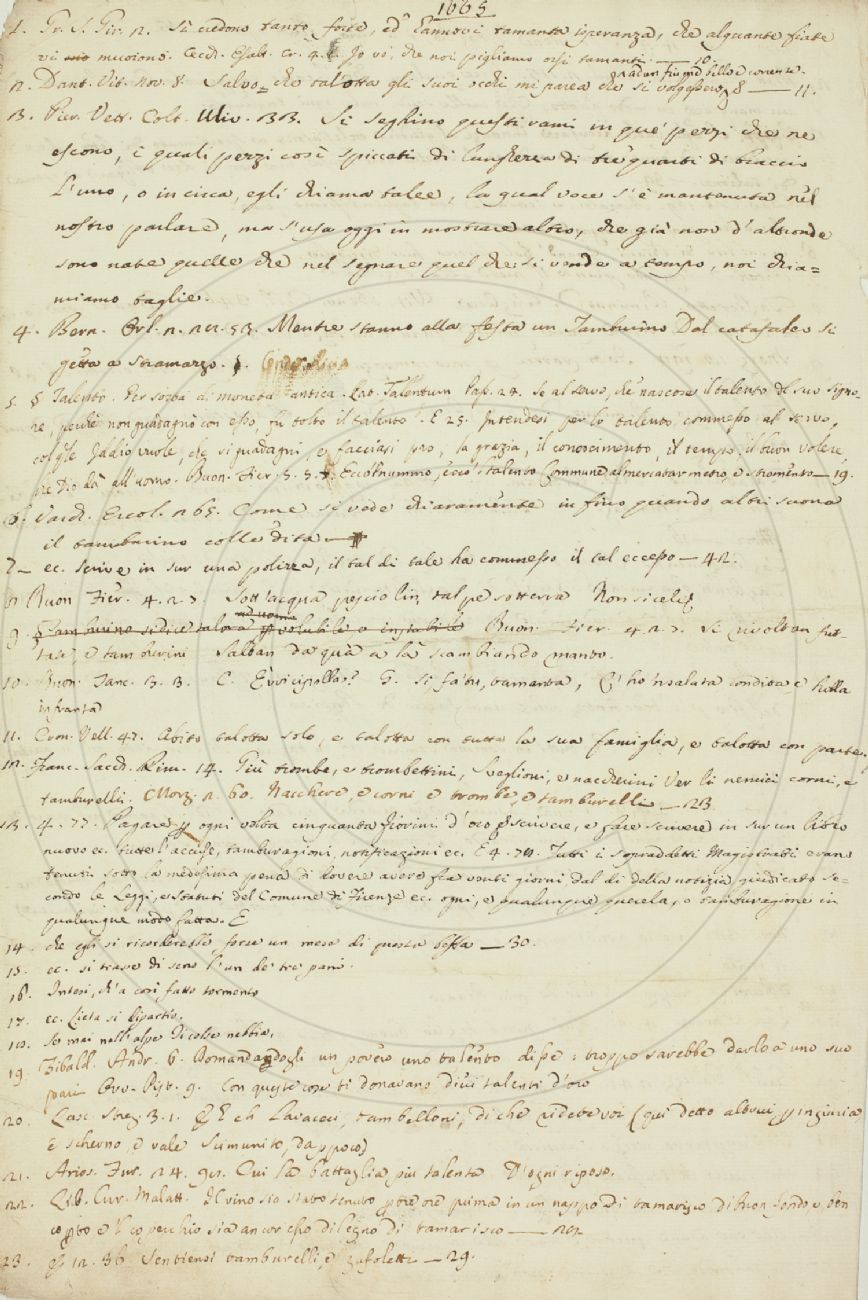 1665
1. Fr. S. Gir. 2. Si credono tanto forte, ed hannovi tamanta speranza, che alquante fiate
vi muoiono. Cecch. Esalt. cr. 4. Io vo', che noi pigliamo orsi tamanti. — 10.
2. Dant. Vit. Nov. 8. Salvo che talotta gli suoi occhi mi parea che si volgessero 8 — 11.
ver lo fiume bello e corrente.
3. Pier. Vett. Colt. Uliv. 33. Si seghino questi rami in que' pezzi che ne
escono, i quali pezzi così spiccati di lunghezza di tre quarti di braccio
l'uno, o in circa, egli chiama talee, la qual voce s'è mantenuta nel
nostro parlare, ma s'usa oggi in mostrare altro, che già non d'altronde
sono nate quelle che nel segnare quel che si vende a tempo, noi chia=
miamo taglie.
4. Bern. Orl. 2. 53. Mentre stanno alla festa un Tamburino Dal catafalco si
getta a stramazzo.
5. § Talento. Per sorta di moneta antica. Lat. Talentum Pass. 24. Se al servo, che nascose il talento del suo signo-
re, perchè non guadagnò con esso, fu tolto il talento. E 25. Intendesi per lo talento commesso al servo,
col quale Iddio vuole, che si guadagni, e facciasi pro, la grazia, il conoscimento, il tempo, il buon volere,
che Dio dà all'uomo. Buon. Fier. 5. 5. Ecco 'l nummo, ecco 'l talento Comune al mercatar metro, e stromento — 19.
6. Varch. Ercol. 265. Come si vede chiaramente in fino quando altri suona
il tamburino colle dita —
7 — ec. scrive in sur una polizza, il tal di tale ha commesso il tal eccesso — 42.
8 Buon Fier. 4. 2. 7. Sott'acqua pesciolin, talpe sotterra Non si celi
9. § Tamburino si dice talora ad uomo volubile o instabile Buon. Fier. 4. 2. 7. Si rivoltan fut-
tasi, e tamburini Saltan da qua a là scambiando manto.
10. Buon. Tanc. 3. 3. C. Èvvi cipolla? G. si fatta, tamanta, Ch' ho 'nsalata condita e tutta
infranta
11. Cron. Vell. 47. Abitò talotta solo, e talotta con tutta la sua famiglia, e talotta con parte.
12. Franc. Sacch. Rim. 14. Più trombe, e trombettini, Sveglioni, e naccherini Ver li nemici corni, e
tamburelli. Morg. 2. 60. Nacchere, e corni e trombe, e tamburelli — 23
13. 4. 77. Pagare per ogni volta cinquanta fiorini d'oro scrivere, e fare scrivere in sur un libro
nuovo ec. tutte l'accuse, tamburagioni, notificazioni ec. E 4. 74. Tutti i sopraddetti Magistrati eran
tenuti sotto la medesima pena di dovere avere fra venti giorni dal dì della notizia giudicato se-
condo le Leggi, e Statuti del Comune di Firenze ec. ogni, e qualunque querela, o tamburagione in
qualunque modo fatta. E
14. che egli si ricorderebbe forse un mese di questa beffa — 30.
15. ec. si trasse di seno l'un de' tre pani.
16. Intesi, ch'a così fatto tormento
17. ec. Lieta si dipartio.
18. Se mai nell'alpe Ti colse nebbia,
19. Zibald. Andr. 6. Domandandogli un povero uno talento disse: troppo sarebbe darlo a uno suo
pari Ovv. Pist. 9. Con queste cose ti donavano dieci talenti d'oro
20. Lasc. Streg. 3. 1. Eh Lavaceci, tambelloni, di che ridete voi (qui detto altrui per ingiuria
e scherno, e vale Scimunito, dappoco)
21. Arios. Fur. 24. 91. Cui la battaglia più talenta D'ogni riposo.
22. Lib. Cur. Malatt. Il vino sio stato tenuto per tre ore prima in un nappo di tamarisco di buon fondo, e ben
coperto e 'l coperchio sia ancor esso di legno di tamarisco —
23. E 12. 36 Sentiensi tamburelli, e zufoletti — 29.